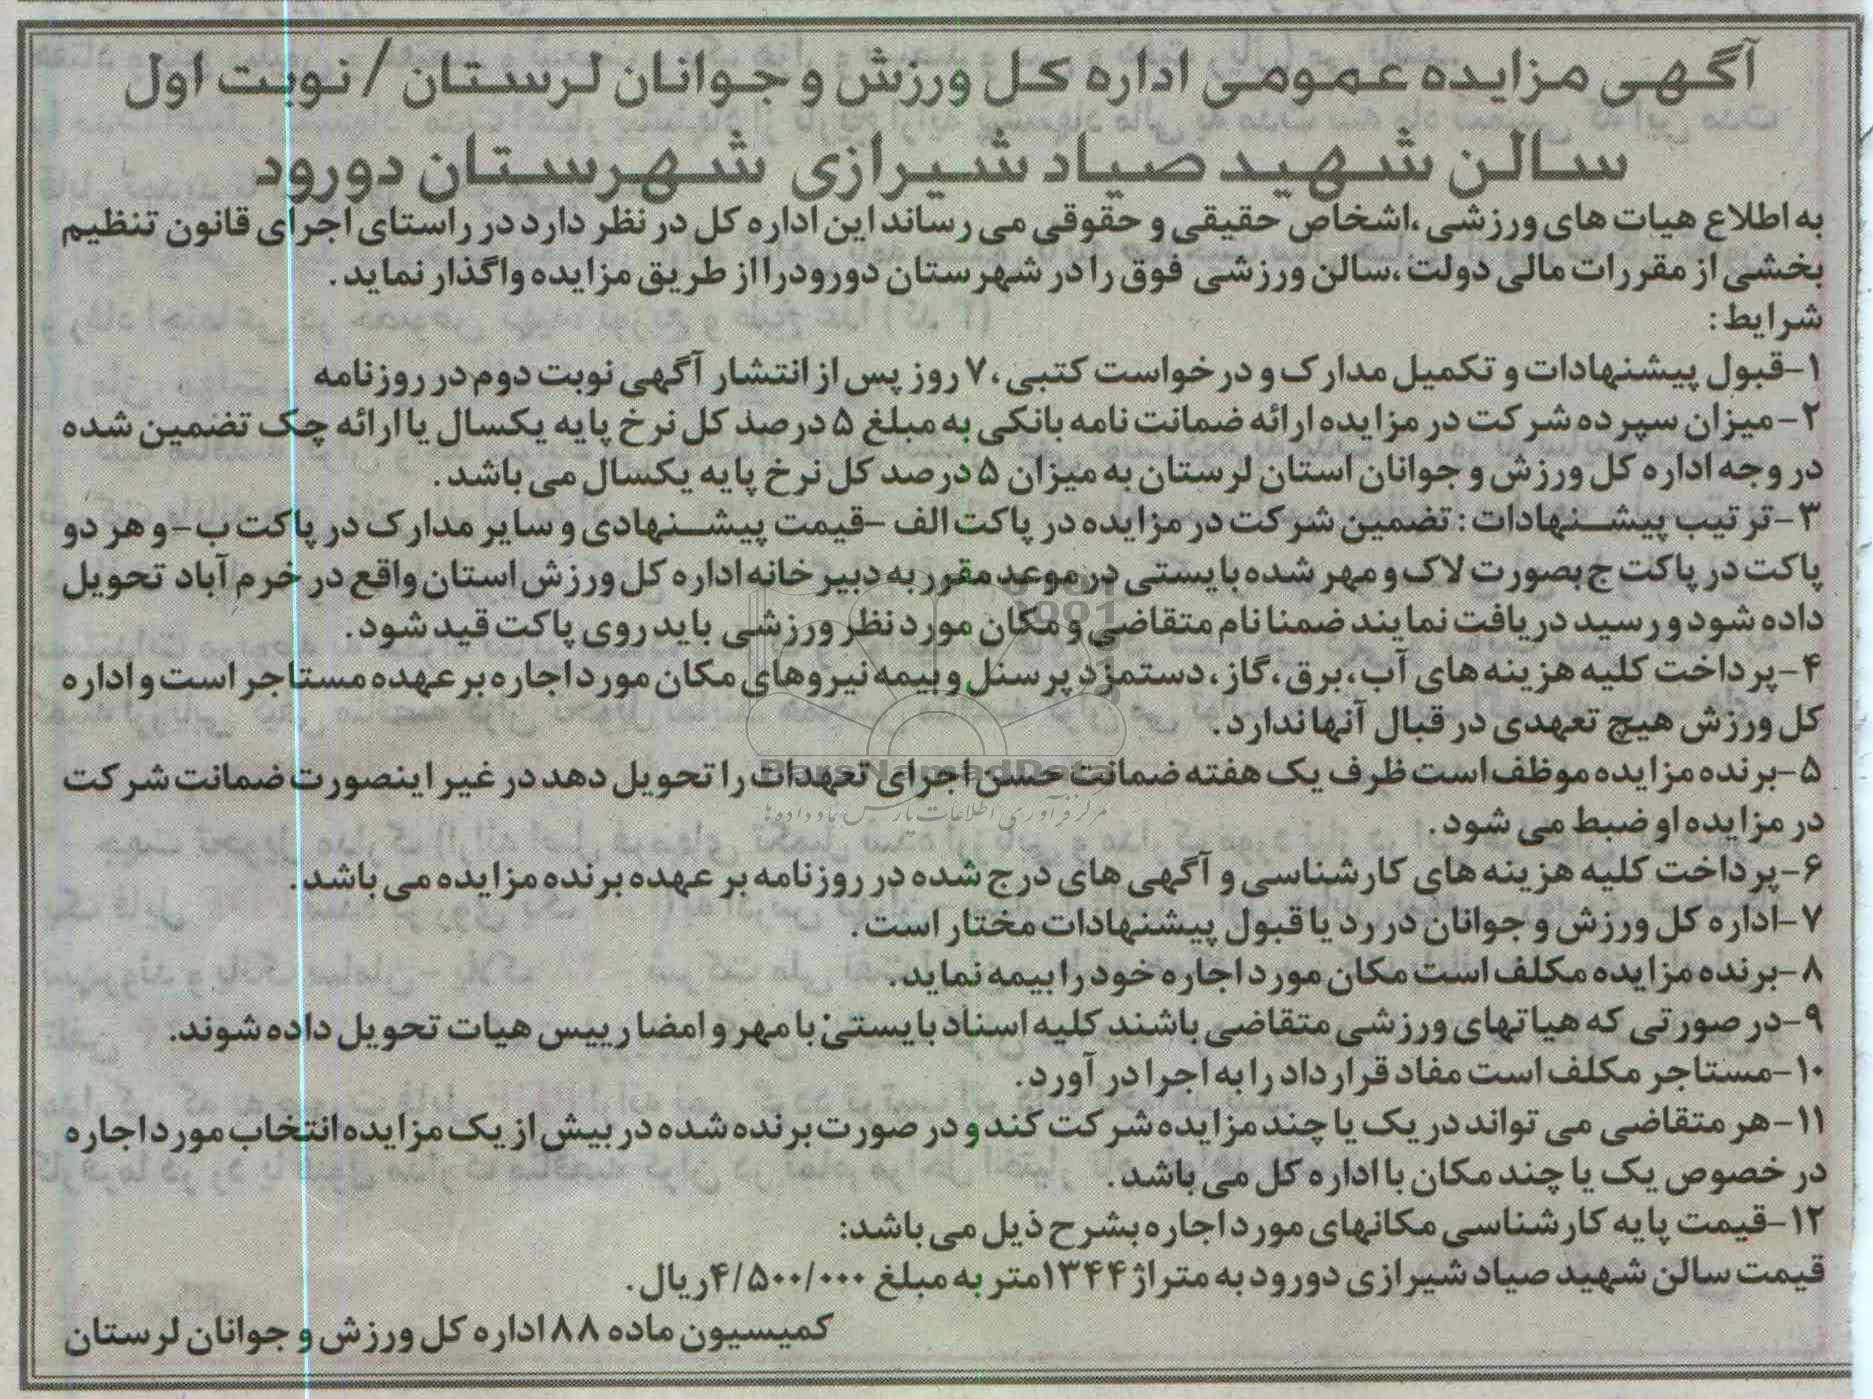 آگهی مزایده عمومی اداره کل ورزش و جوانان لرستان / نوبت اول
سالن شهید صیاد شیرازی شهرستان دورود
به اطلاع هیات های ورزشی ،اشخاص حقیقی و حقوقی می رساند این اداره کل در نظر دارد در راستای اجرای قانون تنظیم
بخشی از مقررات مالی دولت ،سالن ورزشی فوق را در شهرستان دورودرا از طریق مزایده واگذار نماید .
شرایط :
۱-قبول پیشنهادات و تکمیل مدارک و درخواست کتبی ، ۷ روز پس از انتشار آگهی نوبت دوم در روزنامه
۲-میزان سپرده شرکت در مزایده ارائه ضمانت نامه بانکی به مبلغ ۵ درصد کل نرخ پایه یکسال یا ارائه چک تضمین شده
در وجه اداره کل ورزش و جوانان استان لرستان به میزان ۵ درصد کل نرخ پایه یکسال می باشد .
۳-ترتیب پیشنهادات : تضمین شرکت در مزایده در پاکت الف -قیمت پیشنهادی و سایر مدارک در پاکت ب-و هر دو
پاکت در پاکت ج بصورت لاک و مهر شده بایستی در موعد مقرر به دبیرخانه اداره کل ورزش استان واقع در خرم آباد تحویل
داده شود و رسید دریافت نمایند ضمنا نام متقاضی و مکان مورد نظر ورزشی باید روی پاکت قید شود .
۴-پرداخت کلیه هزینه های آب ،برق ،گاز ، دستمزد پرسنل و بیمه نیروهای مکان مورد اجاره بر عهده مستاجر است و اداره
کل ورزش هیچ تعهدی در قبال آنها ندارد .
۵-برنده مزایده موظف است ظرف یک هفته ضمانت حسن اجرای تعهدات را تحویل دهد در غیر اینصورت ضمانت شرکت
در مزایده او ضبط می شود .
۶-پرداخت کلیه هزینه های کارشناسی و آگهی های درج شده در روزنامه بر عهده برنده مزایده می باشد .
۷-اداره کل ورزش و جوانان در رد یا قبول پیشنهادات مختار است .
۸-برنده مزایده مکلف است مکان مورد اجاره خود را بیمه نماید .
۹-در صورتی که هیاتهای ورزشی متقاضی باشند کلیه اسناد بایستی با مهر و امضا رییس هیات تحویل داده شوند.
۱۰-مستاجر مکلف است مفاد قرارداد را به اجرا در آورد .
۱۱-هر متقاضی می تواند در یک یا چند مزایده شرکت کند و در صورت برنده شده در بیش از یک مزایده انتخاب مورد اجاره
در خصوص یک یا چند مکان با اداره کل می باشد .
۱۲-قیمت پایه کارشناسی مکانهای مورد اجاره بشرح ذیل می باشد:
قیمت سالن شهید صیاد شیرازی دورود به متراژ ۱۳۴۴متر به مبلغ ۴/۵۰۰/۰۰۰ریال .
کمیسیون ماده ۸۸ اداره کل ورزش و جوانان لرستان
ParsNamadData
مرکز فرآوری اطلاعات پارس نماد داده ها